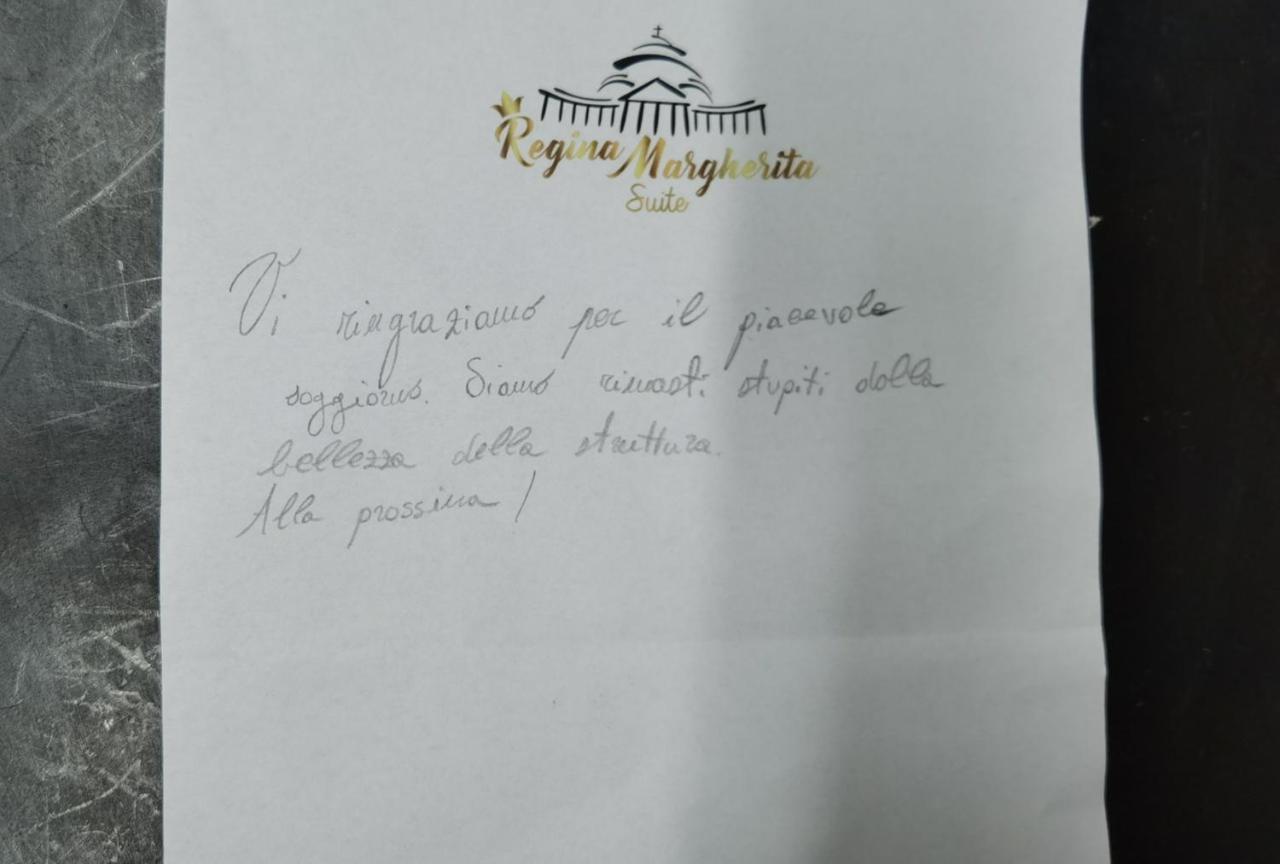 Regina Margherita
Suite
Vi ringraziamo per il piacevole
soggiorno. Siamo rimasti stupiti dalla
bellezza della struttura.
Alla prossima!